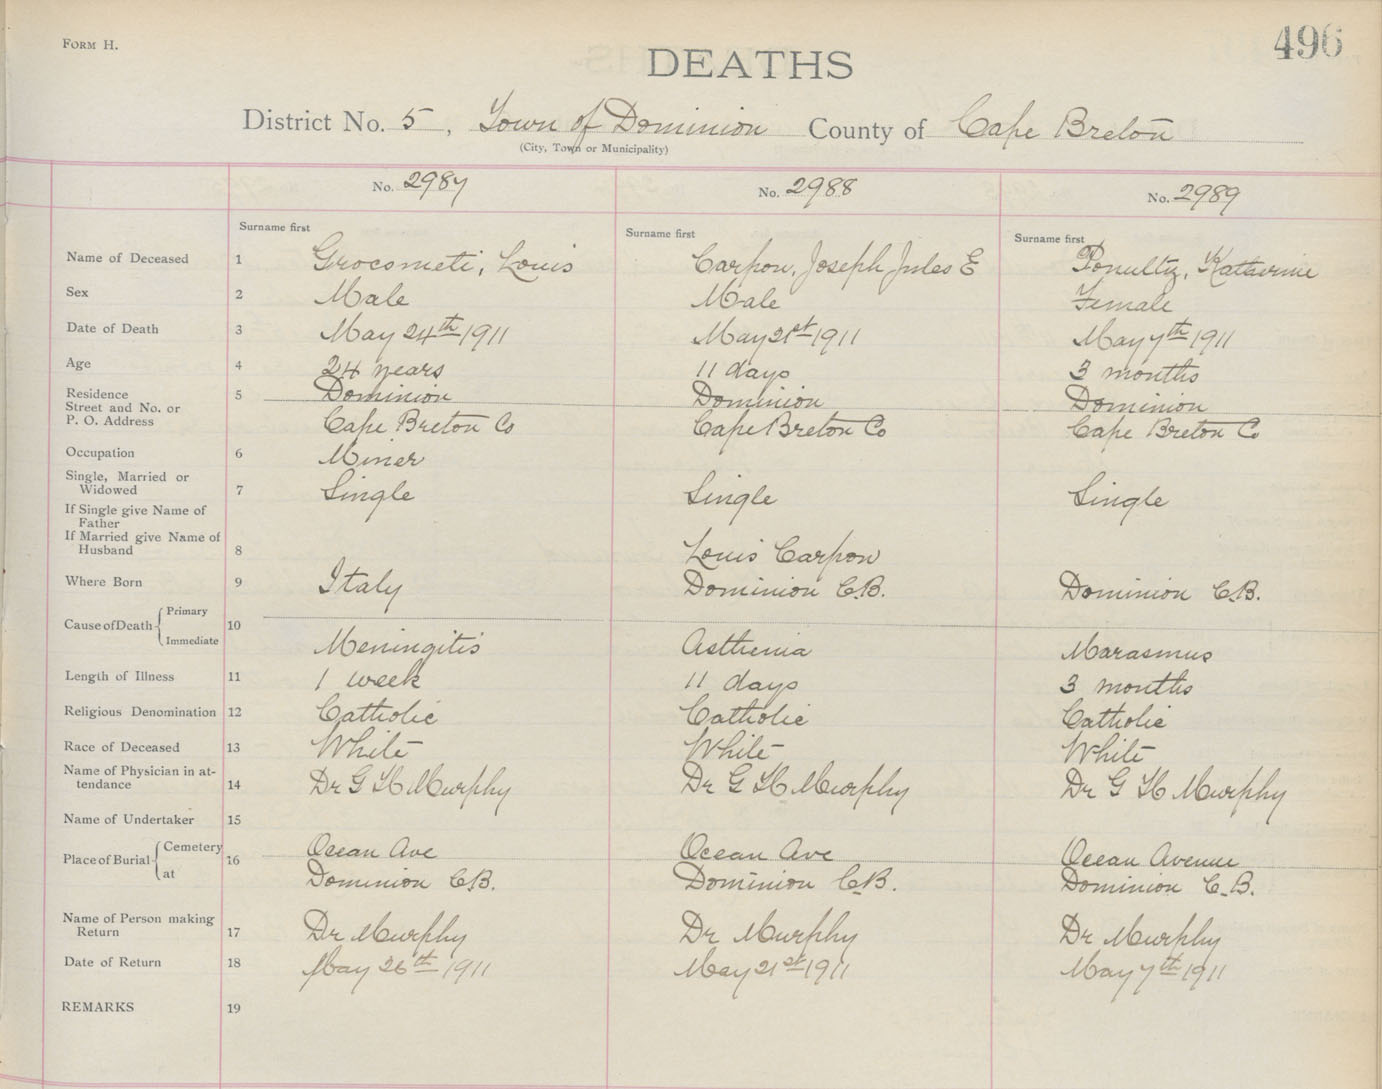 FORM H.
496
DEATHS
District No. 5, Town of Dominion County of Cape Breton
(City, Town or Municipality)
No. 2987 No. 2988 No. 2989
Surname first Surname first Surname first
Name of Deceased 1 Grocometi, Louis Carpon, Joseph Jules E Katherine
Sex 2 Male Male Female
Date of Death 3 May 24th 1911 May 21st 1911 May 7th 1911
Age 4 24 years 11 days 3 months
Residence 5 Dominion Dominion Dominion
Street and No. or
P. O. Address Cape Breton Co Cape Breton Co Cape Breton Co
Occupation 6 Miner
Single, Married or
Widowed 7 Single Single Single
If Single give Name of
Father
If Married give Name of
Husband 8 Louis Carpon
Where Born 9 Italy Dominion C.B. Dominion C.B.
Cause of Death Primary 10
Immediate Meningitis Asthenia Marasmus
Length of Illness 11 1 week 11 days 3 months
Religious Denomination 12 Catholic Catholic Catholic
Race of Deceased 13 White White White
Name of Physician in at-
tendance 14 Dr G H Murphy Dr G H Murphy Dr G H Murphy
Name of Undertaker 15
Place of Burial Cemetery 16 Ocean Ave Ocean Ave Ocean Avenue
at Dominion C.B. Dominion C.B. Dominion C.B.
Name of Person making
Return 17 Dr Murphy Dr Murphy Dr Murphy
Date of Return 18 May 26th 1911 May 21st 1911 May 7th 1911
REMARKS 19